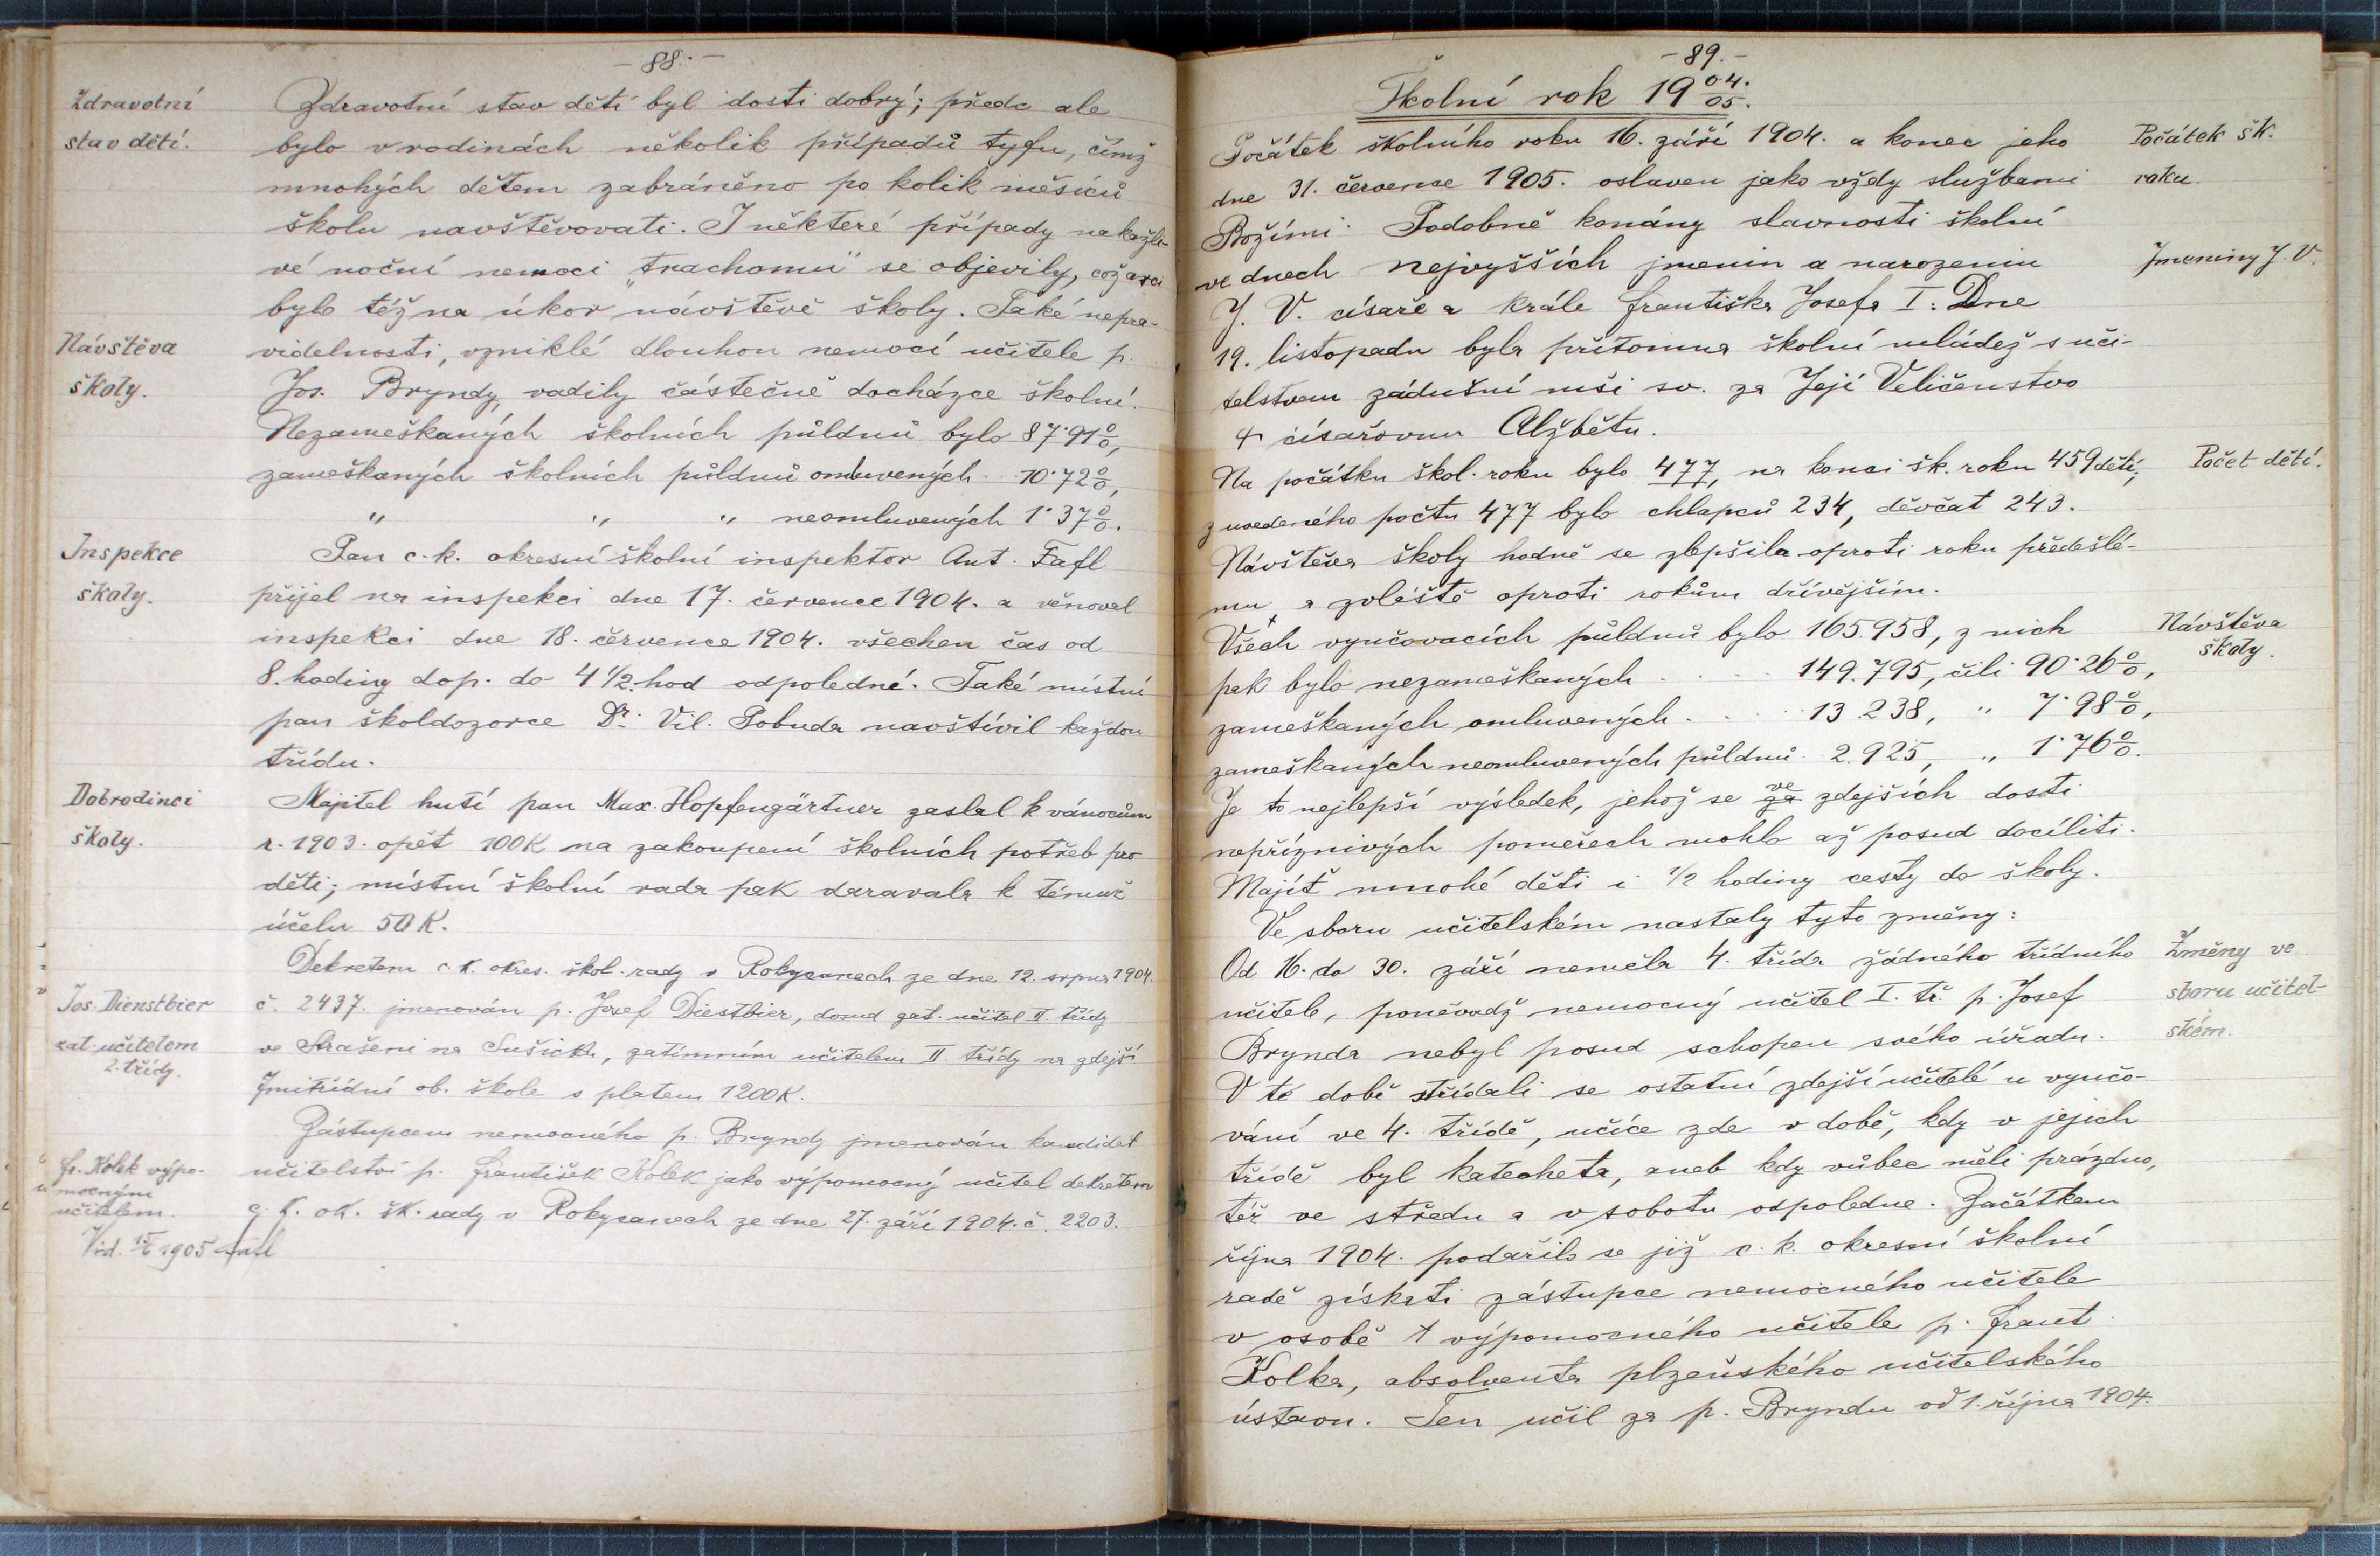 - 88. -
Zdravotní
stav dětí.
Zdravotní stav dětí byl dosti dobrý; přede ale
bylo v rodinách několik případů tyfu, čímž
mnohých dětem zabráněno po kolik měsíců
školu navštěvovati. I některé případy nakažli-
vé noční nemoci „trachomu" se objevily, což arci
bylo též na úkor návštěvě školy. Také nepra-
Návštěva
školy.
videlnosti, vzniklé dlouhou nemocí učitele p.
Jos. Bryndy, vadily částečně docházce školní.
Nezameškaných školních půldnů bylo 87·91%,
zameškaných školních půldnů omluvených · · 10·72%,
" " " neomluvených 1·37%.
Inspekce
školy.
Pan c. k. okresní školní inspektor Ant. Fafl
přijel na inspekci dne 17. července 1904. a věnoval
inspekci dne 18. července 1904. všechen čas od
8. hodiny dop. do 4 1/2. hod odpoledne. Také místní
pan školdozorce Dr. Vil. Pobuda navštívil každou
třídu.
Dobrodinci
školy.
Majitel hutí pan Max. Hopfengärtner zaslal k vánocům
r. 1903. opět 100K na zakoupení školních potřeb pro
děti; místní školní rada pak darovala k témuž
účelu 50 K.
Dekretem c. k. okres. škol. rady v Rokycanech ze dne 12. srpna 1904.
Jos. Dienstbier
zat. učitelem
2. třídy.
č. 2437. jmenován p. Josef Diestbier, dosud zat. učitel II. třídy
ve Strašeni na Sušicku, zatímním učitelem II. třídy na zdejší
7mitřídní ob. škole s platem 1200K.
Zástupcem nemocného p. Bryndy jmenován kandidát
Fr. Kolek výpo-
mocným
učitelem.
učitelství p. František Kolek jako výpomocný učitel dekretem
c. k. ok. šk. rady v Rokycanech ze dne 27. září 1904. č. 2203.
Vid. 15/6 1905 Fafl
- 89. -
Školní rok 19 04./05.
Počátek šk.
roku.
Počátek školního roku 16. září 1904. a konec jeho
dne 31. července 1905. oslaven jako vždy službami
Božími. Podobně konány slavnosti školní
Jmeniny J. V.
ve dnech nejvyšších jmenin a narozenin
J. V. císaře a krále Františka Josefa I. Dne
19. listopadu byla přítomna školní mládež s uči-
telstvem zádušní mši sv. za Její Veličenstvo
† císařovnu Alžbětu.
Počet dětí.
Na počátku škol. roku bylo 477, na konci šk. roku 459 dětí;
z uvedeného počtu 477 bylo chlapců 234, děvčat 243.
Návštěva školy hodně se zlepšila oproti roku předešlé-
mu, a zvláště oproti rokům dřívějším.
Návštěva
školy.
Všech vyučovacích půldnů bylo 165.958, z nich
pak bylo nezameškaných . . . . 149.795, čili 90·26%,
zameškaných omluvených . . . . 13.238, " 7·98%,
zameškaných neomluvených půldnů 2.925, " 1·76%.
Je to nejlepší výsledek, jehož se za ve zdejších dosti
nepříznivých poměrech mohlo až posud docíliti.
Majíť mnohé děti i 1/2 hodiny cesty do školy.
Ve sboru učitelském nastaly tyto změny:
Změny ve
sboru učitel-
ském.
Od 16. do 30. září neměla 4. třída žádného třídního
učitele, poněvadž nemocný učitel I. tř. p. Josef
Brynda nebyl posud schopen svého úřadu.
V té době střídali se ostatní zdejší učitelé u vyučo-
vání ve 4. třídě, učíce zde v době, kdy v jejich
třídě byl katecheta, aneb kdy vůbec měli prázdno,
též ve středu a v sobotu odpoledne. Začátkem
října 1904. podařilo se již c. k. okresní školní
radě získati zástupce nemocného učitele
v osobě † výpomocného učitele p. Frant.
Kolka, absolventa plzeňského učitelského
ústavu. Ten učil za p. Bryndu od 1. října 1904.